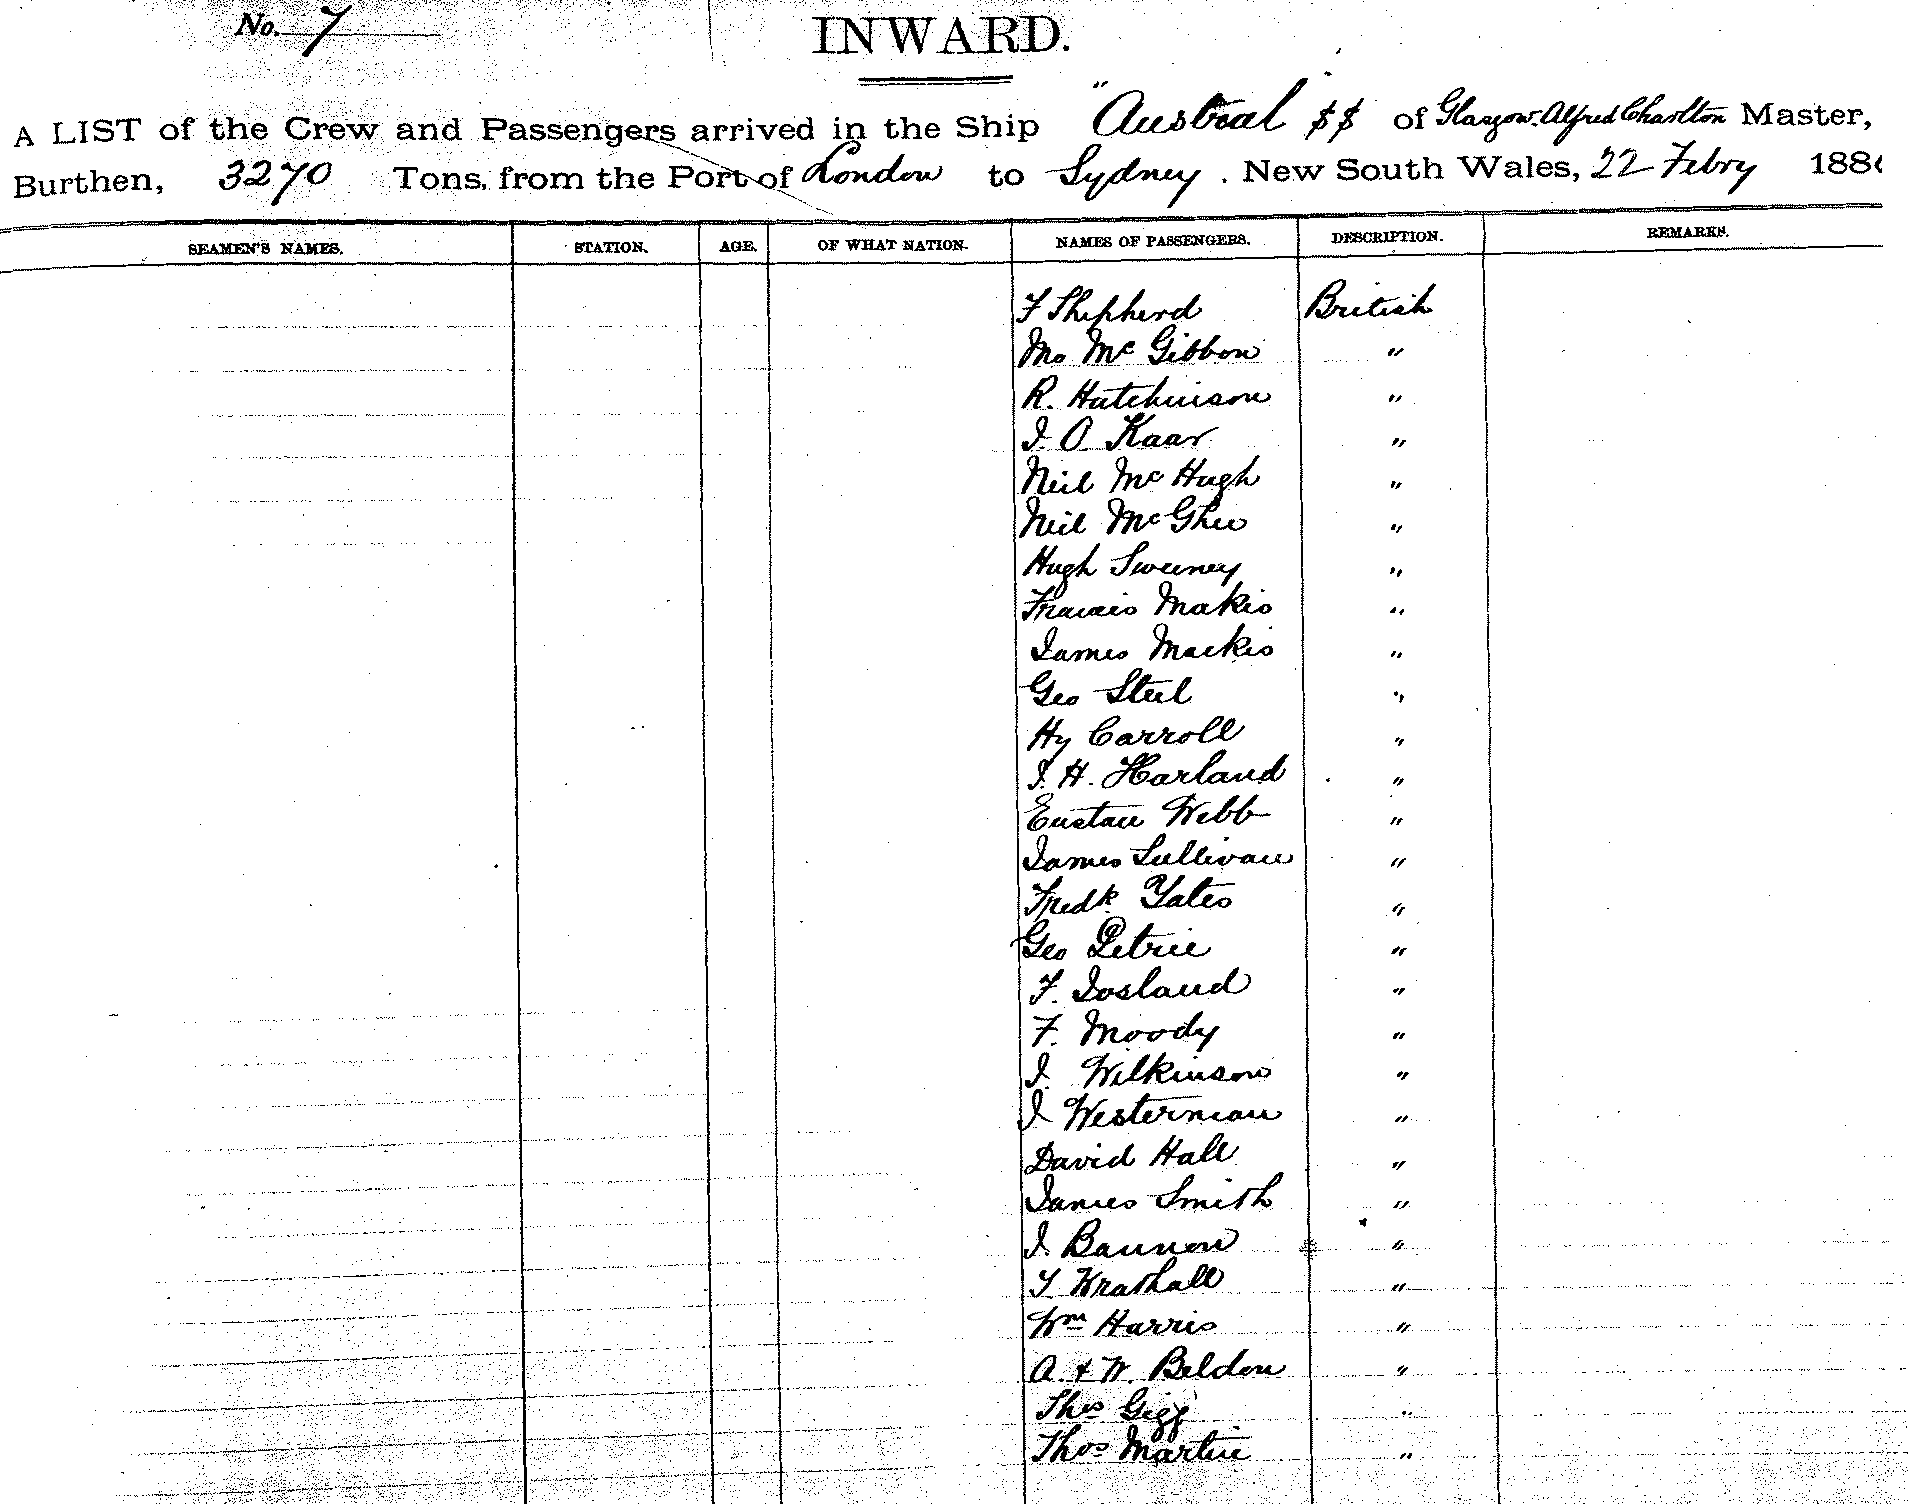 No. 7
INWARD.
A LIST of the Crew and Passengers arrived in the Ship "Austral SS of Glasgow. Alfred Charlton Master,
Burthen, 3270 Tons, from the Port of London to Sydney. New South Wales, 22 Febry 188
SEAMEN'S NAMES. STATION. AGE. OF WHAT NATION. NAMES OF PASSENGERS. DESCRIPTION. REMARKS.
F Shepherd British
Mc Gibbon "
R. Hutchinson "
J. O Kaar "
Neil Mc Hugh "
Neil Mc Ghee "
Hugh Sweeney "
Francis Makis "
James Mackis "
Geo Steel "
Hy Carroll "
J. H. Harland "
Eustace Webb "
James Sullivan "
Fredk Yates "
Geo Petrie "
F. Josland "
F. Moody "
J. Wilkinson "
J. Westerman "
David Hall "
James Smith "
J. Bannon "
T Wrathall "
Wm Harris "
A. & W. Beldon "
Thos Gigg "
Thos Martin "